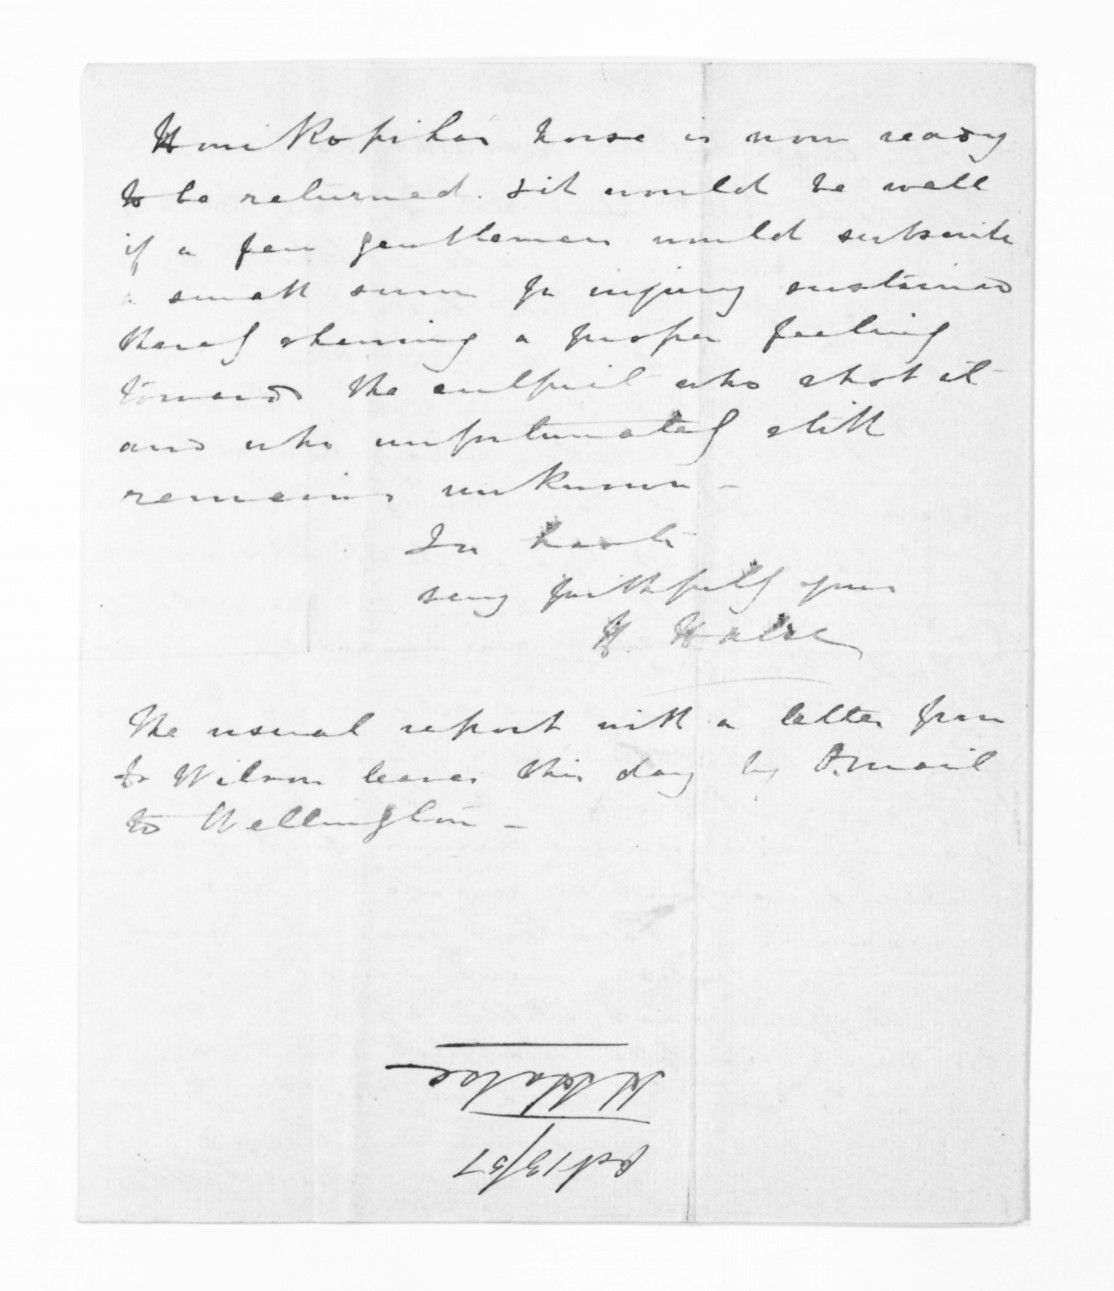 Honi Ropihas horse is now ready
to be returned. & it would be well
if a few gentlemen would subscribe
a small sum for injury sustained
thereby shewing a proper feeling
towards the culprit who shot it
and who unfortunately still
remains unknown -
In haste
very faithfully yours
H. Halse
The usual report with a letter from
Dr Wilson leaves this day by O. mail
to Wellington -
H Halse
Oct 13/57